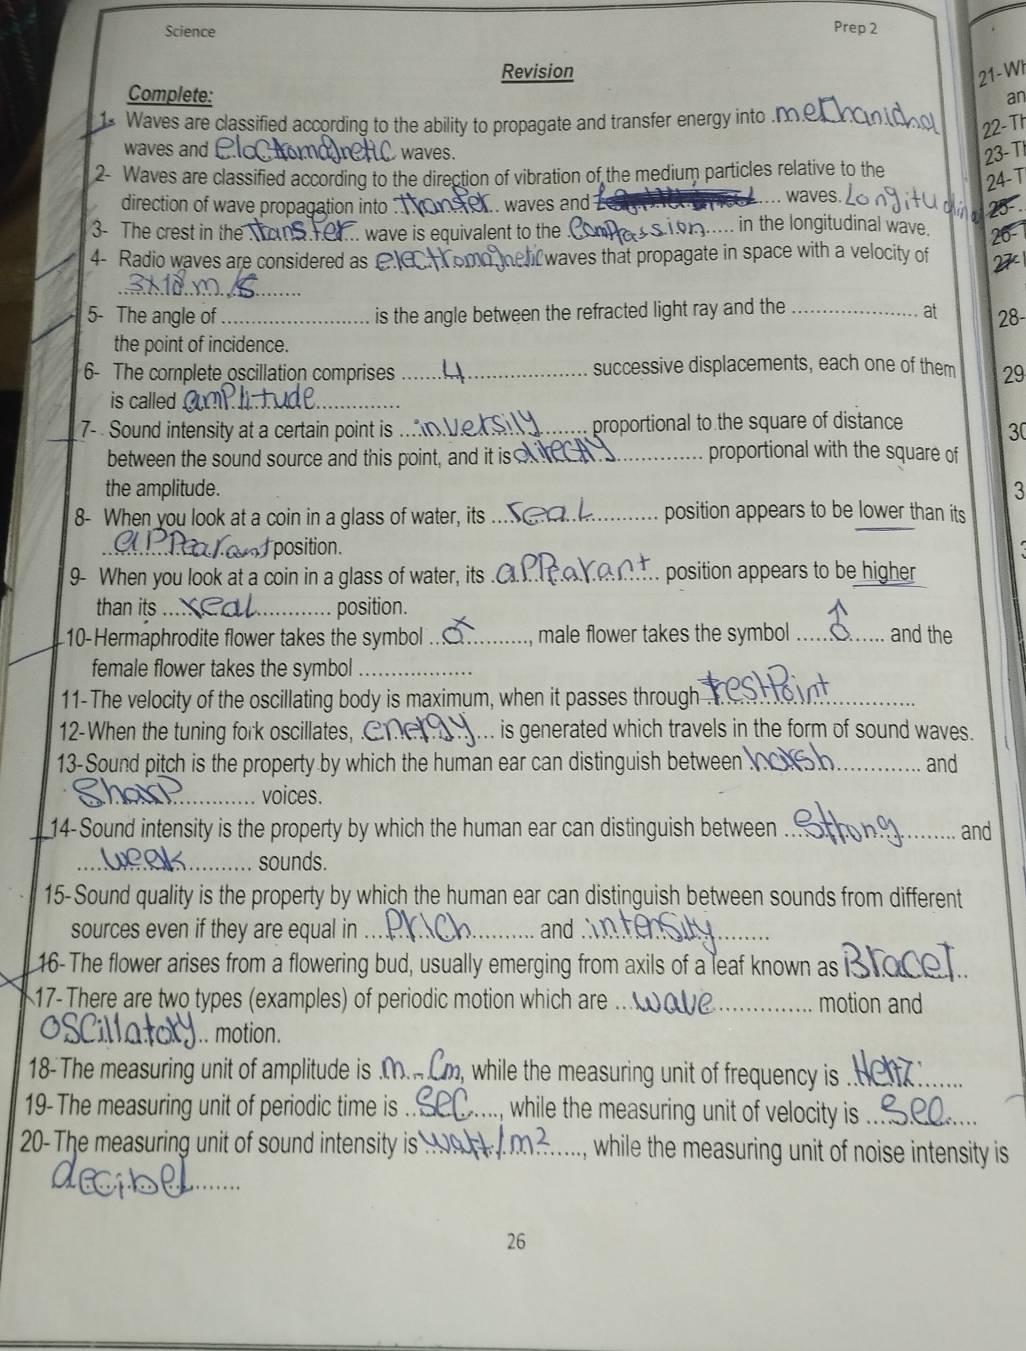 Science
Prep 2
Revision
Complete:
1- Waves are classified according to the ability to propagate and transfer energy into .mechanichal
waves and eloctromagnetic waves.
2- Waves are classified according to the direction of vibration of the medium particles relative to the
direction of wave propagation into .transfer.. waves and .... waves. Longitudinal
3- The crest in the .transfer... wave is equivalent to the .Compression..... in the longitudinal wave.
4- Radio waves are considered as electromagnetic waves that propagate in space with a velocity of
3x10 m/s
5- The angle of ........................ is the angle between the refracted light ray and the .................... at
the point of incidence.
6- The complete oscillation comprises .......4.................... successive displacements, each one of them
is called amplitude..............
7- Sound intensity at a certain point is ...inversily......... proportional to the square of distance
between the sound source and this point, and it is directly............... proportional with the square of
the amplitude.
8- When you look at a coin in a glass of water, its ....real............ position appears to be lower than its
apparant position.
9- When you look at a coin in a glass of water, its .apparant.. position appears to be higher
than its ....real............. position.
10-Hermaphrodite flower takes the symbol ............, male flower takes the symbol ......♂...... and the
female flower takes the symbol ...................
11-The velocity of the oscillating body is maximum, when it passes through rest Point..............
12-When the tuning fork oscillates, .energy... is generated which travels in the form of sound waves.
13-Sound pitch is the property by which the human ear can distinguish between harsh.............. and
Sharp............. voices.
14-Sound intensity is the property by which the human ear can distinguish between ...Strong......... and
....weak........... sounds.
15-Sound quality is the property by which the human ear can distinguish between sounds from different
sources even if they are equal in ...prich.......... and .intensity.........
16-The flower arises from a flowering bud, usually emerging from axils of a leaf known as Bracet..
17-There are two types (examples) of periodic motion which are ...wave............... motion and
OSCillatory.. motion.
18-The measuring unit of amplitude is .m.-Cm, while the measuring unit of frequency is .Hertz.......
19-The measuring unit of periodic time is ..Sec....., while the measuring unit of velocity is ...Sec.....
20-The measuring unit of sound intensity is .watt/m²......, while the measuring unit of noise intensity is
decibel........
26
21-Wh
an
22-Th
23-Th
24-T
25-
26-
27-
28-
29
30
3